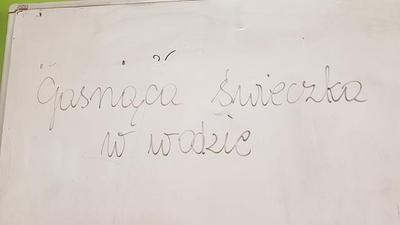 Gasnąca świeczka
w wodzie